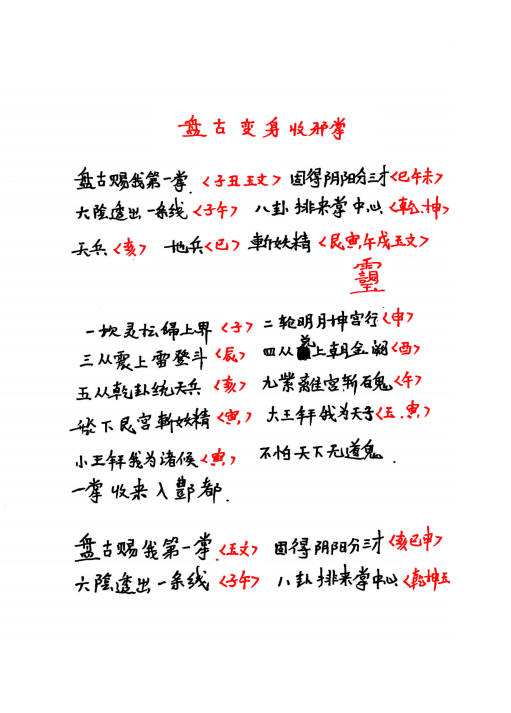 盘古变身收邪掌
盘古赐我第一掌.〈子丑五文〉 固得阴阳分三才〈巳午未〉
大陰透出一条线〈子午〉 八卦排来掌中心〈乾.坤〉
天兵〈亥〉 地兵〈巳〉 斬妖精〈艮寅,午戌五文〉
一坎灵坛歸上界〈子〉 二轮明月坤宫行〈申〉
三从震上雷登斗〈辰〉 四从 上朝金阙〈酉〉
五从乾卦统天兵〈亥〉 九紫離宫斬石鬼〈午〉
下艮宫斬妖精〈寅,〉 大王拜我为天子〈五.寅,〉
小王拜我为诸候〈寅,〉 不怕天下无道鬼.
一掌收来入酆都.
盘古赐我第一掌.〈五文〉 固得阴阳分三才〈亥巳申〉
大陰透出一条线〈子午〉 八卦排来掌中心〈乾坤五